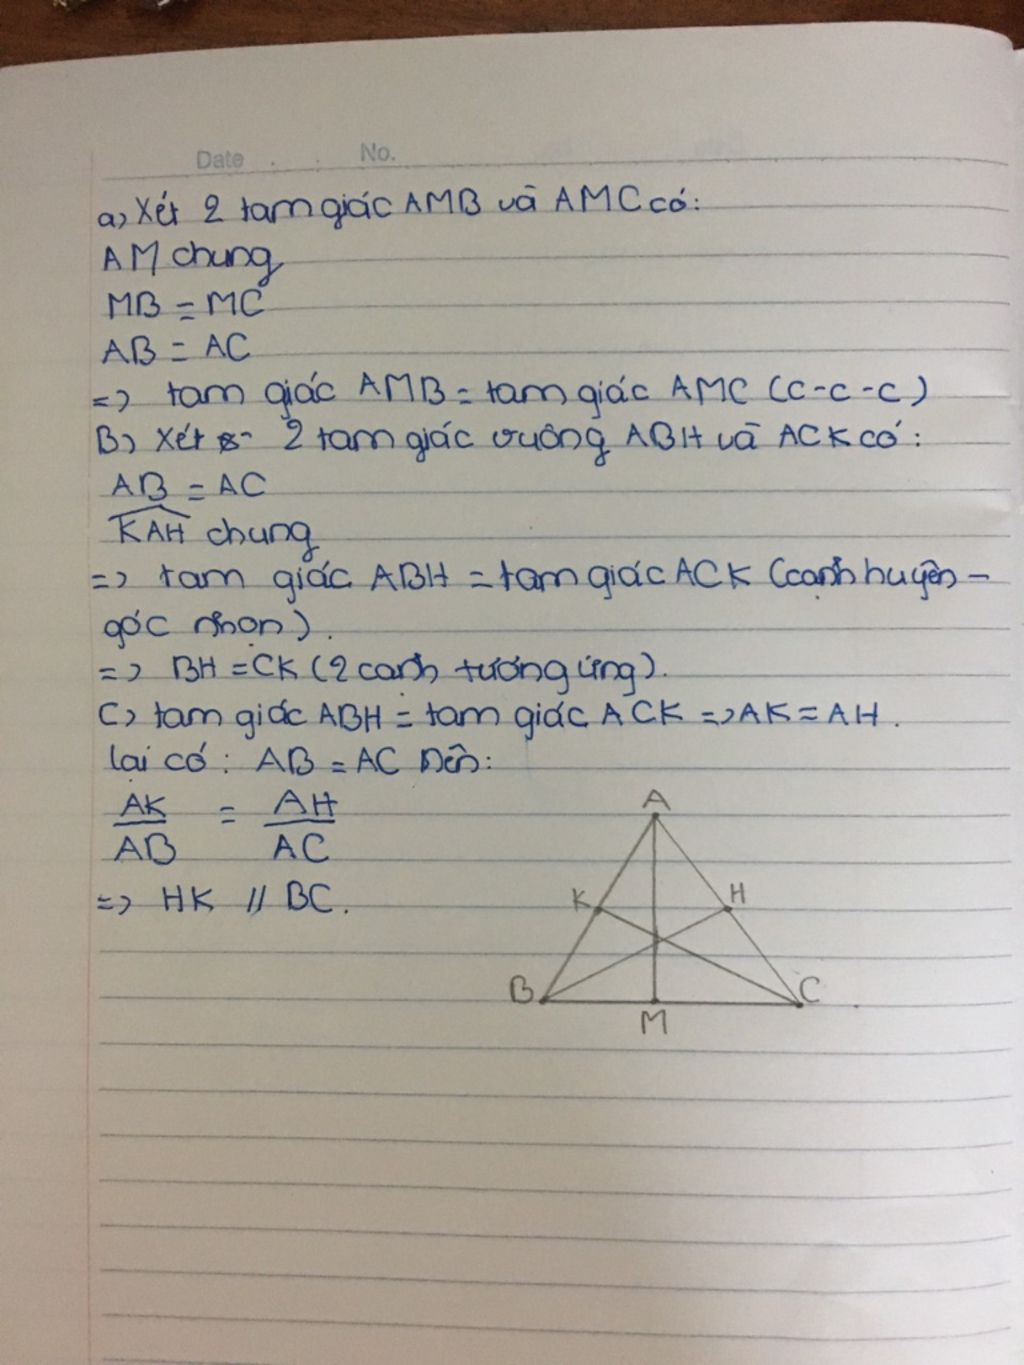 Date No.
a, Xét 2 tam giác AMB và AMC có:
AM chung
MB = MC
AB = AC
=> tam giác AMB = tam giác AMC (c-c-c)
B, Xét 2 tam giác vuông ABH và ACK có:
AB = AC
KAH chung
=> tam giác ABH = tam giác ACK (cạnh huyền -
góc nhọn).
=> BH = CK (2 cạnh tương ứng).
C, tam giác ABH = tam giác ACK => AK = AH.
lại có: AB = AC nên:
AK = AH
AB AC
=> HK // BC.
A
K H
B C
M